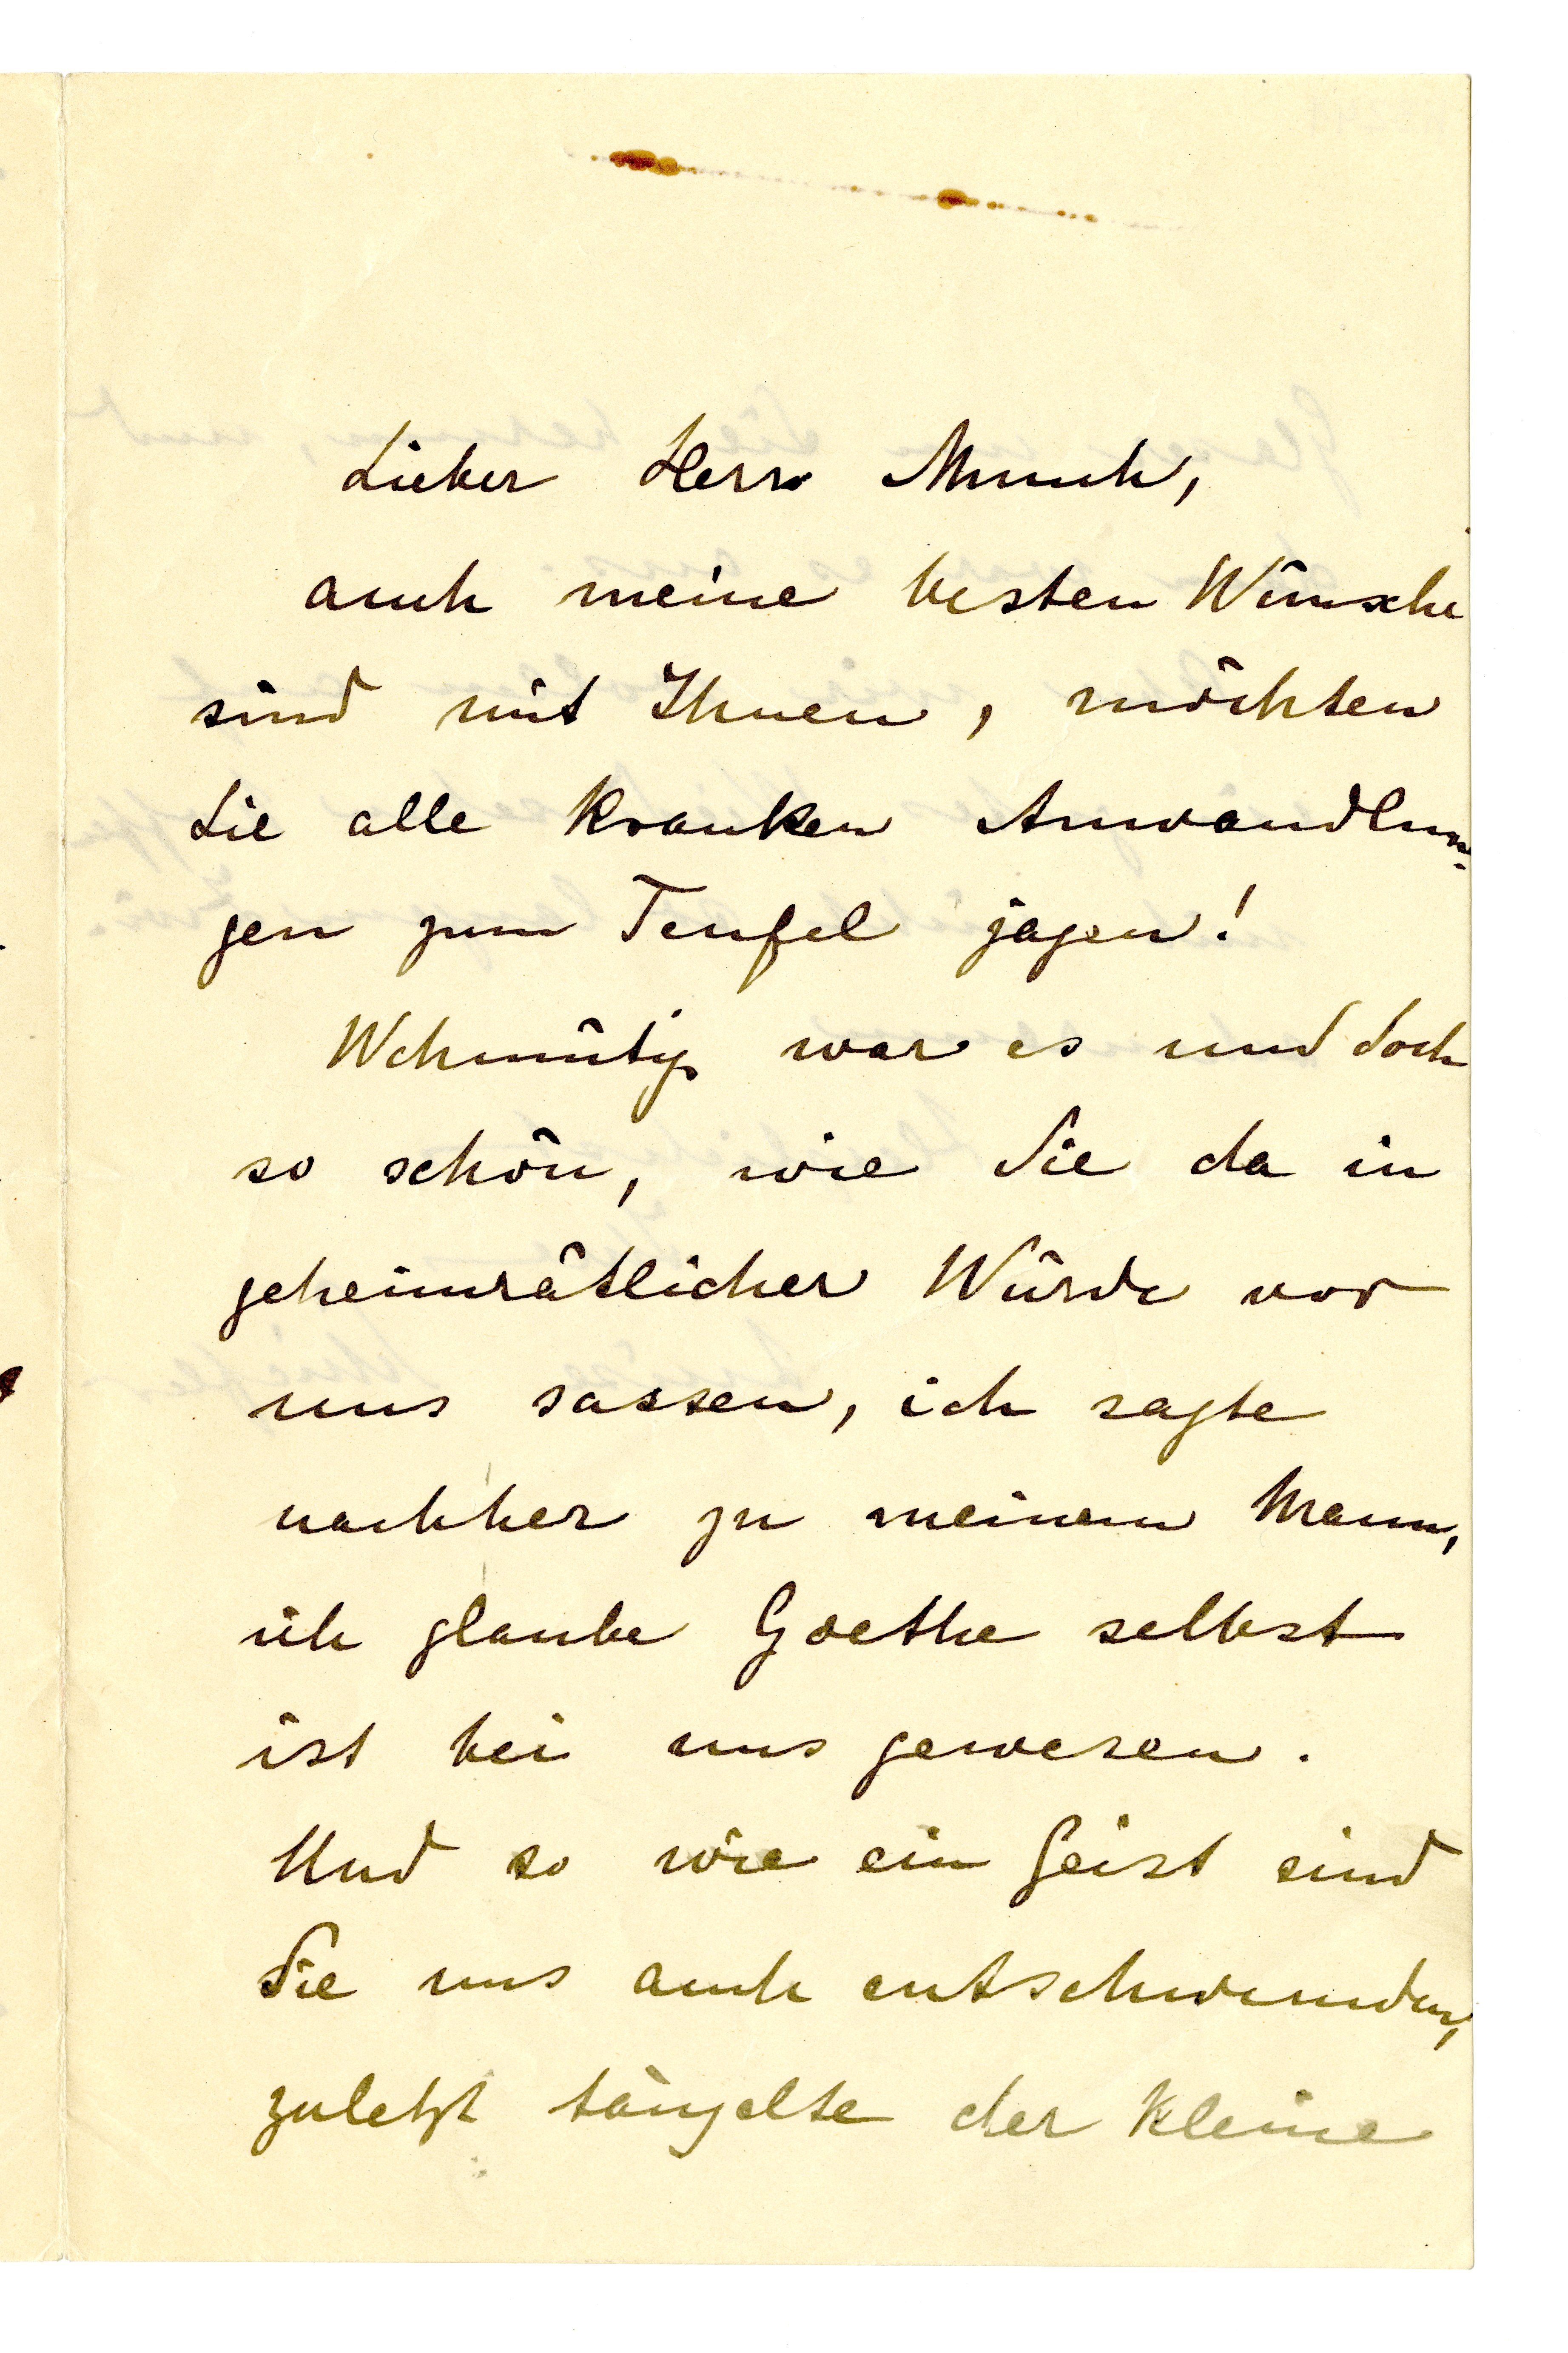 Lieber Herr Munch,
auch meine besten Wünsche
sind mit Ihnen, möchten
Sie alle kranken Anwandlun-
gen zum Teufel jagen!
Wehmütig war es und doch
so schön, wie Sie da in
geheimrätlicher Würde vor
uns sassen, ich sagte
nachher zu meinem Mann,
ich glaube Goethe selbst
ist bei uns gewesen.
Und so wie ein Geist sind
Sie uns auch entschwunden,
zuletzt tänzelte der kleine